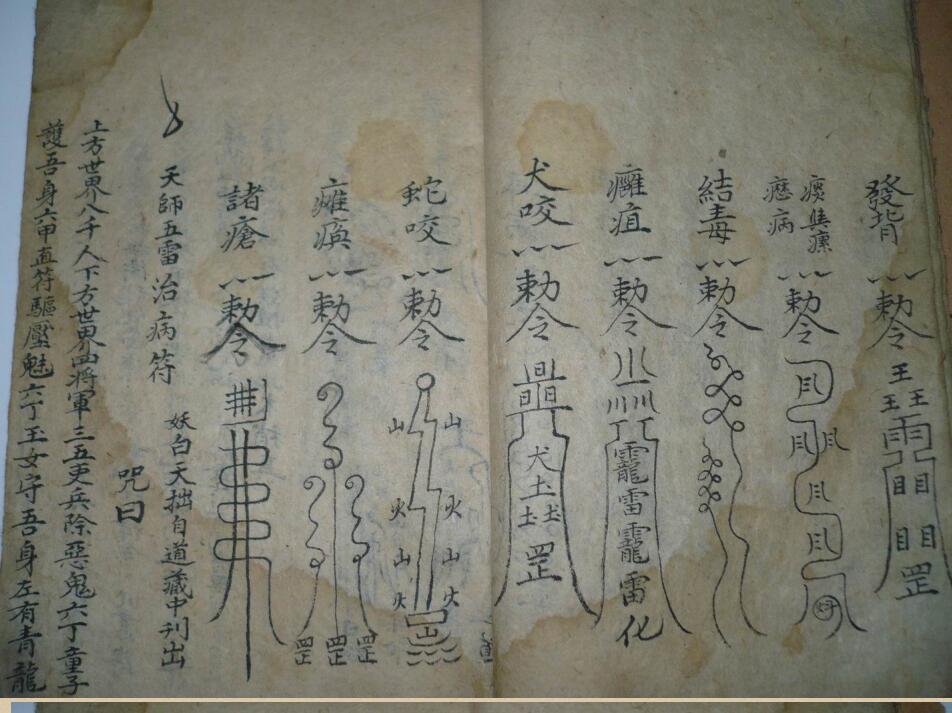 發背
敕令
王
王王
雨
目目
目目
罡
瘰病
敕令
月
月月
月
月
結毒
敕令
癰疽
敕令
靇雷靇雷化
犬咬
敕令
犬
土
土土
罡
蛇咬
敕令
山山
火火
山山
火火
敕令
罡罡罡
諸瘡
敕令
天師五雷治病符
妖白天拙自道藏中刊出
咒曰
上方世界八千人下方世界四將軍三五吏兵除惡鬼六丁童子
護吾身六甲直符驅壓魅六丁玉女守吾身左有青龍